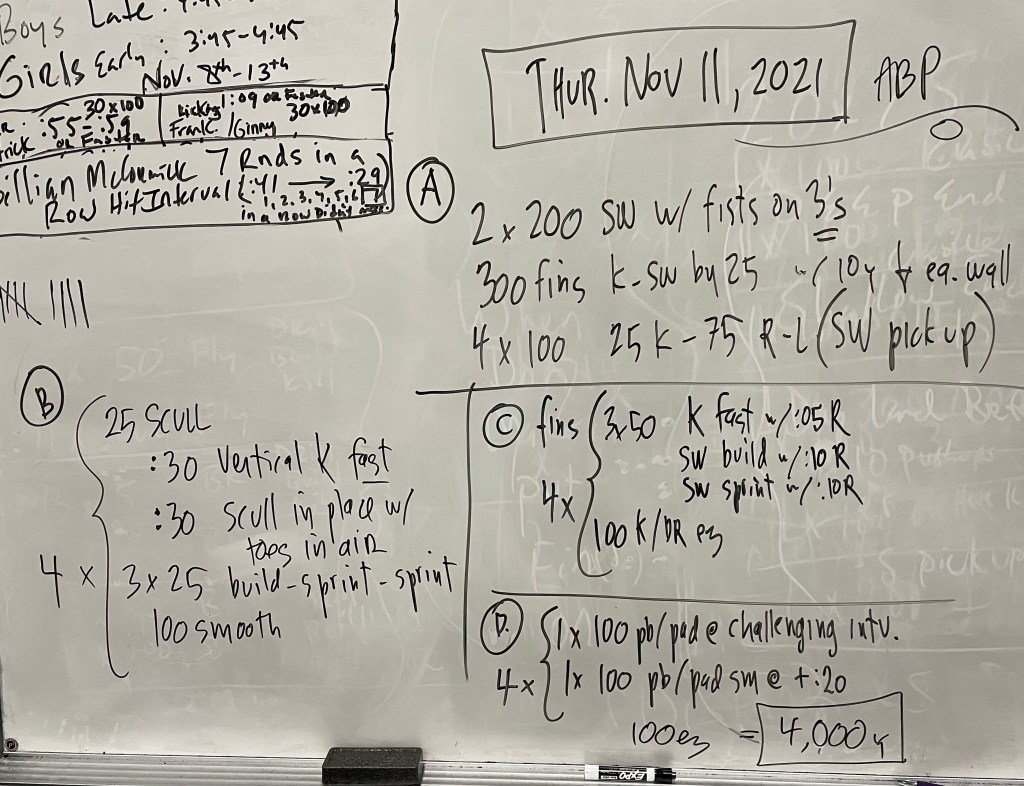 Boys Late:
Girls Early: 3:45-4:45
Nov. 8th-13th
30x100
:55-:59
or Faster
Kicking 1:09 or Faster
30x100
Frank/Ginny
Gillian McCormick 7 Rnds in a
Row Hit Interval (:41 → :29)
1, 2, 3, 4, 5, 6, 7
in a Row Didn't
THUR. NOV 11, 2021 ABP
A
2 x 200 SW w/ fists on 3's
300 fins K-SW by 25 w/ 10y f ea. wall
4 x 100 25 K - 75 R-L (SW pick up)
B
25 SCULL
:30 Vertical K fast
:30 Scull in place w/
toes in air
4 x 3 x 25 build-sprint-sprint
100 smooth
C fins 3x50 K fast w/:05R
SW build w/:10R
SW sprint w/:10R
4x
100 K/DR ez
D. 1x 100 pb/pad @ challenging intv.
4x 1x 100 pb/pad sm @ +:20
100 ez = 4,000y
EXPO